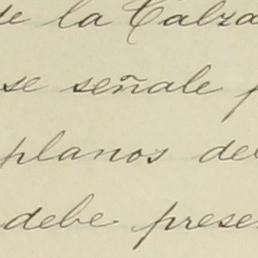 de la Calza
se señale p
planos de
debe prese